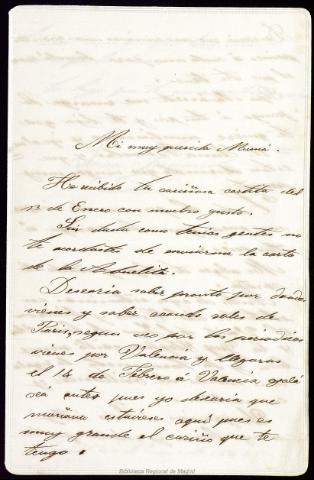 Mi muy querida Mamá.
He recibido tu cariñosa cartita del
13 de Enero con mucho gusto.
Sin duda como tienes gentes no
te acordaste de enviarme la carta
de la Abuelita.
Desearia saber pronto por donde
vienes y saber cuando sales de
Paris, segun veo por los periodicos
vienes por Valencia y llegaras
el 14 de Febrero á Valencia ojalá
sea antes pues yo desearia que
mañana estuvieses aquí pues es
muy grande el cariño que te
tengo.
Biblioteca Regional de Madrid